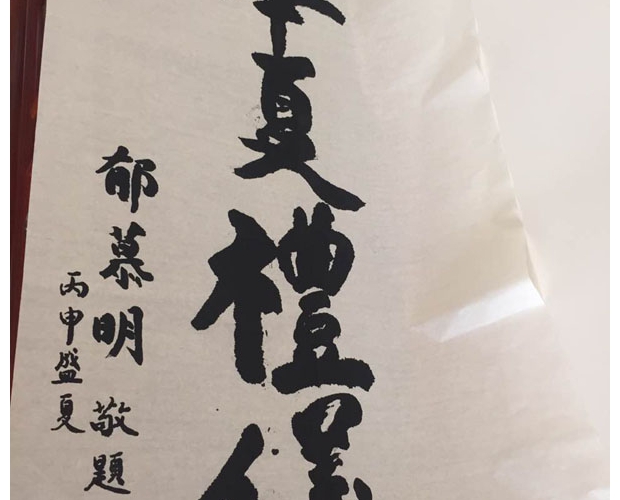 夏禮
郁慕明敬題
丙申盛夏